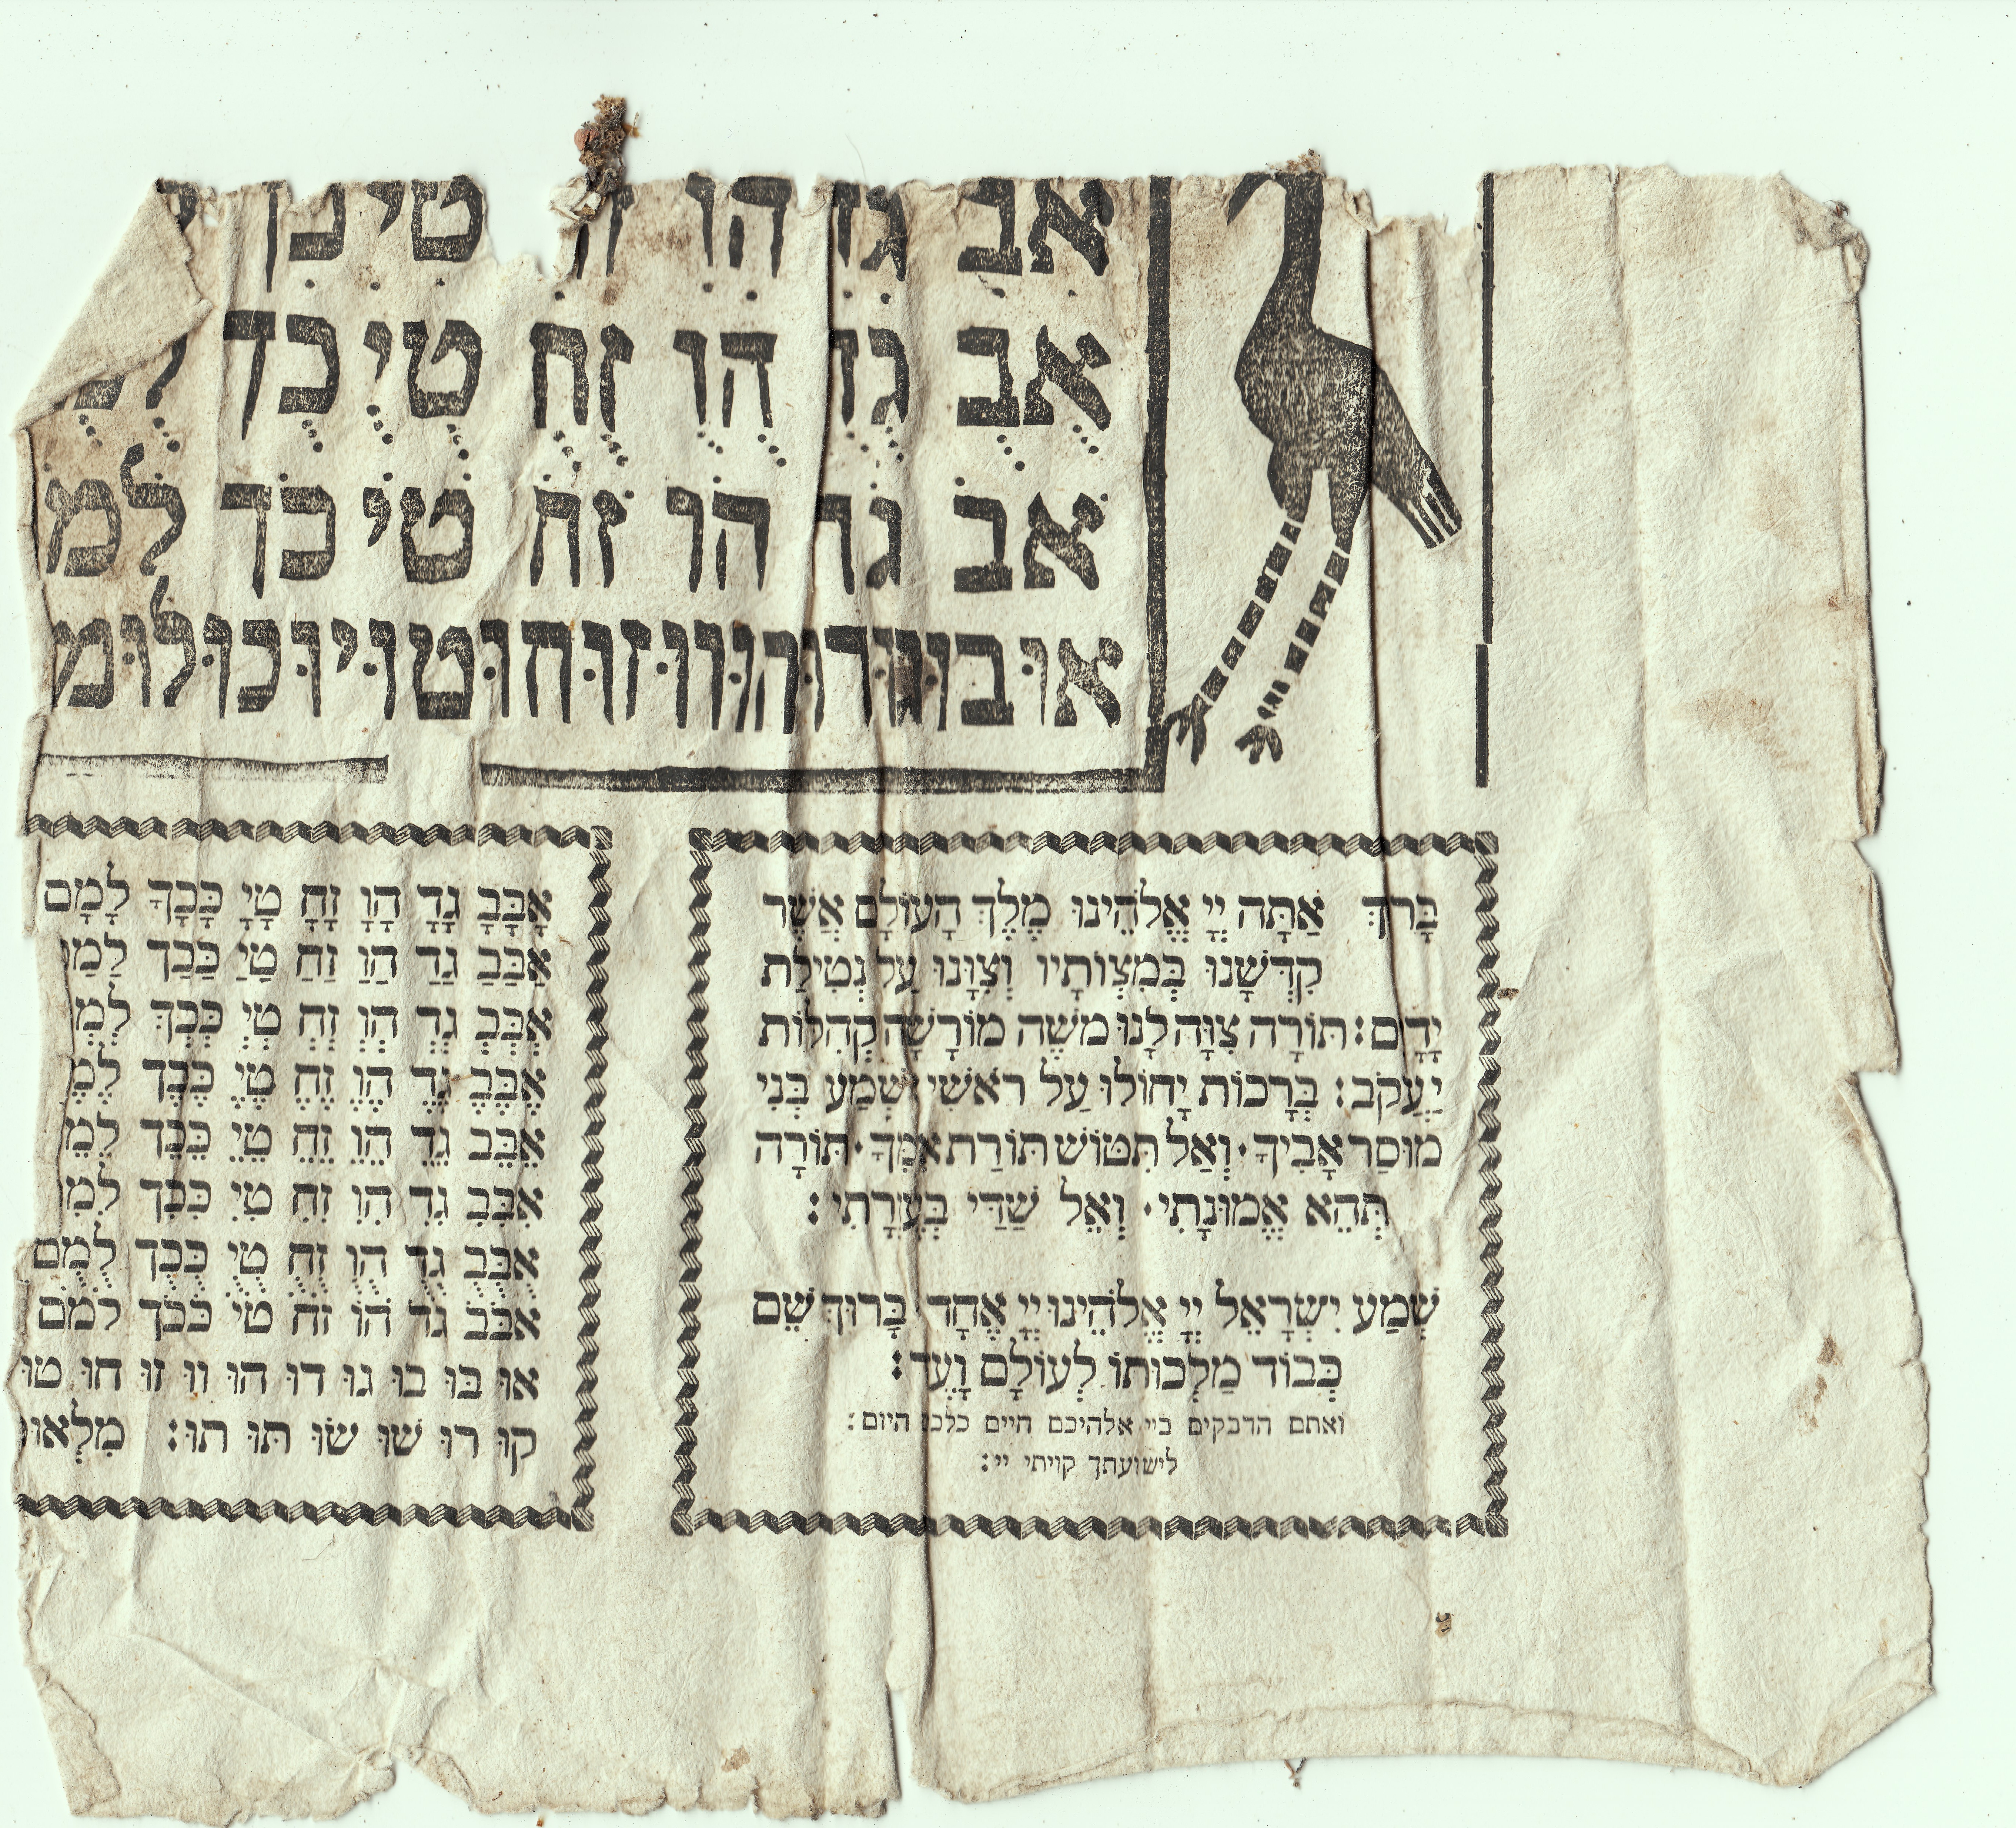 אב גד הו טי כך
אֻבֻ גֻדֻ הֻוֻ זֻחֻ טֻיֻ כֻךֻ לֻמֻ
אֹבֹ גֹדֹ הֹוֹ זֹחֹ טֹיֹ כֹךֹ לֹמֹ
אוּבוּגוּדוּהוּווּזוּחוּטוּיוּכוּלוּמ
בָּרךְ אַתָּה יְיָ אֱלֹהֵינוּ מֶלֶךְ הָעוֹלָם אֲשֶׁר
קִדְּשָׁנוּ בְּמִצְוֹתָיו וְצִוָּנוּ עַל נְטִילַת
יָדָיִם: תּוֹרָה צִוָּה לָנוּ משֶׁה מוֹרָשָׁה קְהִלּוֹת
יַעֲקֹב: בְּרָכוֹת יָחוֹלוּ עַל ראֹשִׁי שְׁמַע בְּנִי
מוּסַר אָבִיךָ· וְאַל תִּטּוֹשׁ תּוֹרַת אִמֶּךָ· תּוֹרָה
תְּהֵא אֱמוּנָתִי· וְאֵל שַׁדַּי בְּעֶזְרָתִי:
שְׁמַע יִשְׂרָאֵל יְיָ אֱלֹהֵינוּ יְיָ אֶחָד בָּרוּךְ שֵׁם
כְּבוֹד מַלְכוּתוֹ לְעוֹלָם וָעֶד:
ואתם הדבקים ביי אלהיכם חיים כלכם היום:
לישועתך קויתי יי:
אָבָּבָ גָדָ הָוָ זָחָ טָיָ כָּכָךָ לָמָם
אַבַּבַ גַדַ הַוַ זַחַ טַיַ כַּכַךַ לַמַ
אְבְּבְ גְדְ הְוְ זְחְ טְיְ כְּכְךְ לְמְ
אֶבֶּבֶ גֶדֶ הֶוֶ זֶחֶ טֶיֶ כֶּכֶךֶ לֶמֶ
אֵבֵּבֵ גֵדֵ הֵוֵ זֵחֵ טֵיֵ כֵּכֵךֵ לֵמֵ
אִבִּבִ גִדִ הִוִ זִחִ טִיִ כִּכִךִ לִמִ
אֻבֻּבֻ גֻדֻ הֻוֻ זֻחֻ טֻיֻ כֻּכֻךֻ לֻמֻם
אֹבֹּבֹ גֹדֹ הֹוֹ זֹחֹ טֹיֹ כֹּכֹךֹ לֹמֹם
אוּ בּוּ בוּ גוּ דוּ הוּ ווּ זוּ חוּ טוּ
קוּ רוּ שׁוּ שׂוּ תּוּ תוּ: מַלְאוּ